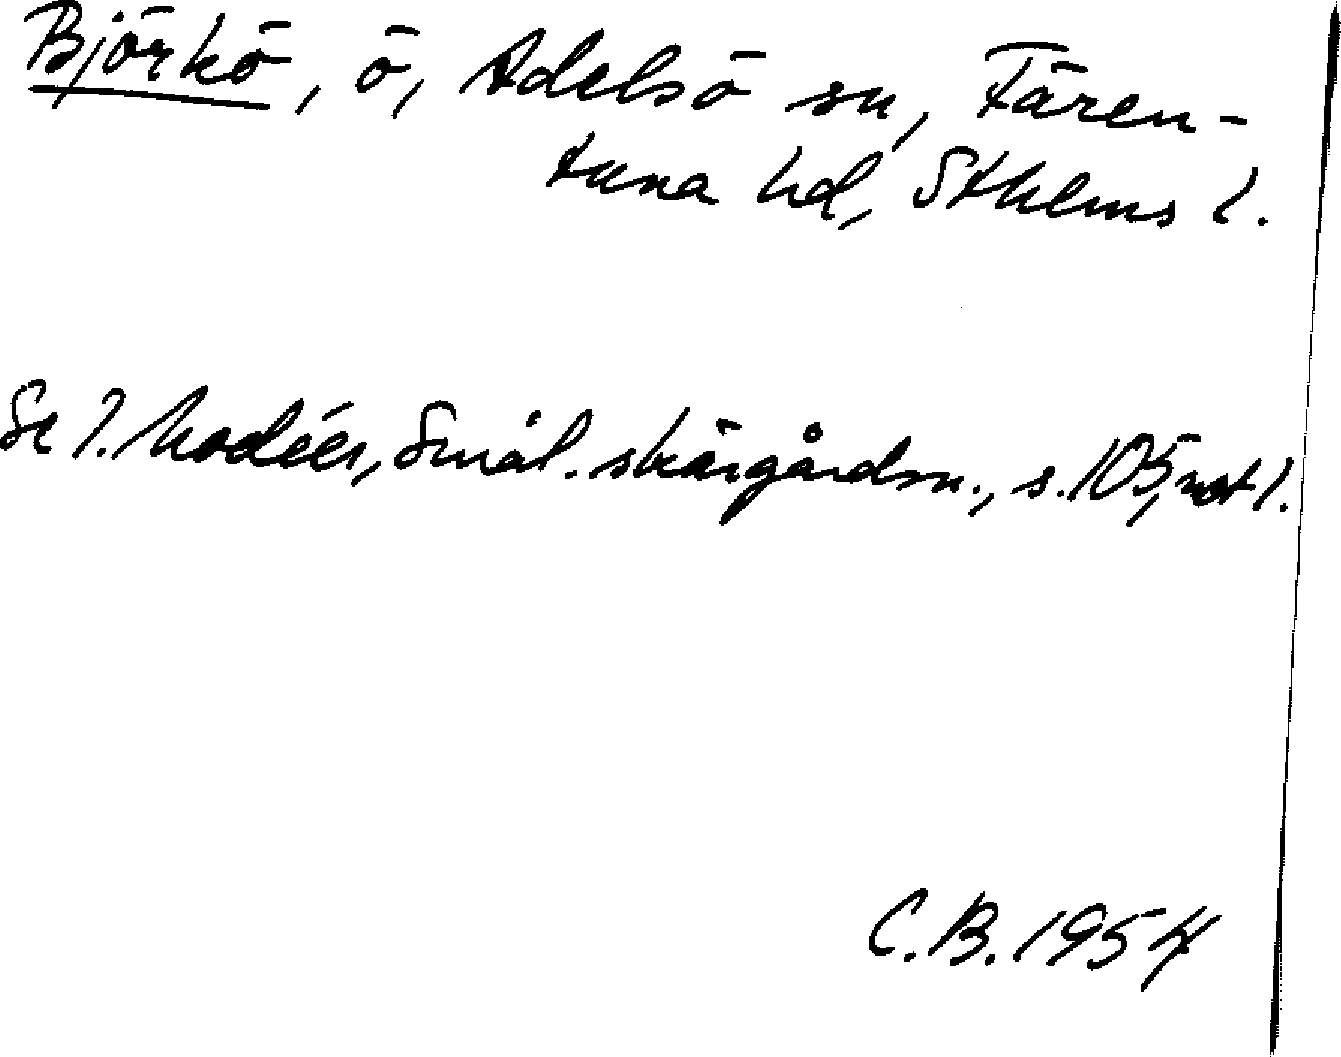 Björkö, ö, Adelsö sn, Fären-
tuna hd, Sthlms l.
Se I. Modéer, Smål. skärgårdsn., s. 105, not 1.
C.B. 1954